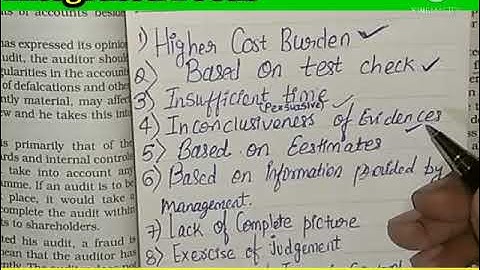 ts of accounts beside
has expressed its opinion
udit, the auditor should
gularities in the account
of defalcations and othe
ntly material, may affec
ew and he takes this into
is primarily that of the
rds and internal controls
take into account any
mme. If an audit is to be
place, it would take a
complete the audit within
ts to shareholders.
ted his audit, a fraud is
ean that the auditor has
1) Higher Cost Burden ✓
2) Based on test check ✓
3) Insufficient time ✓
(Persuasive)
4) Inconclusiveness of Evidences
5) Based on Eestimates
6) Based on Information provided by
Management.
7) Lack of Complete picture
8) Exercise of Judgement
KINEMASTER